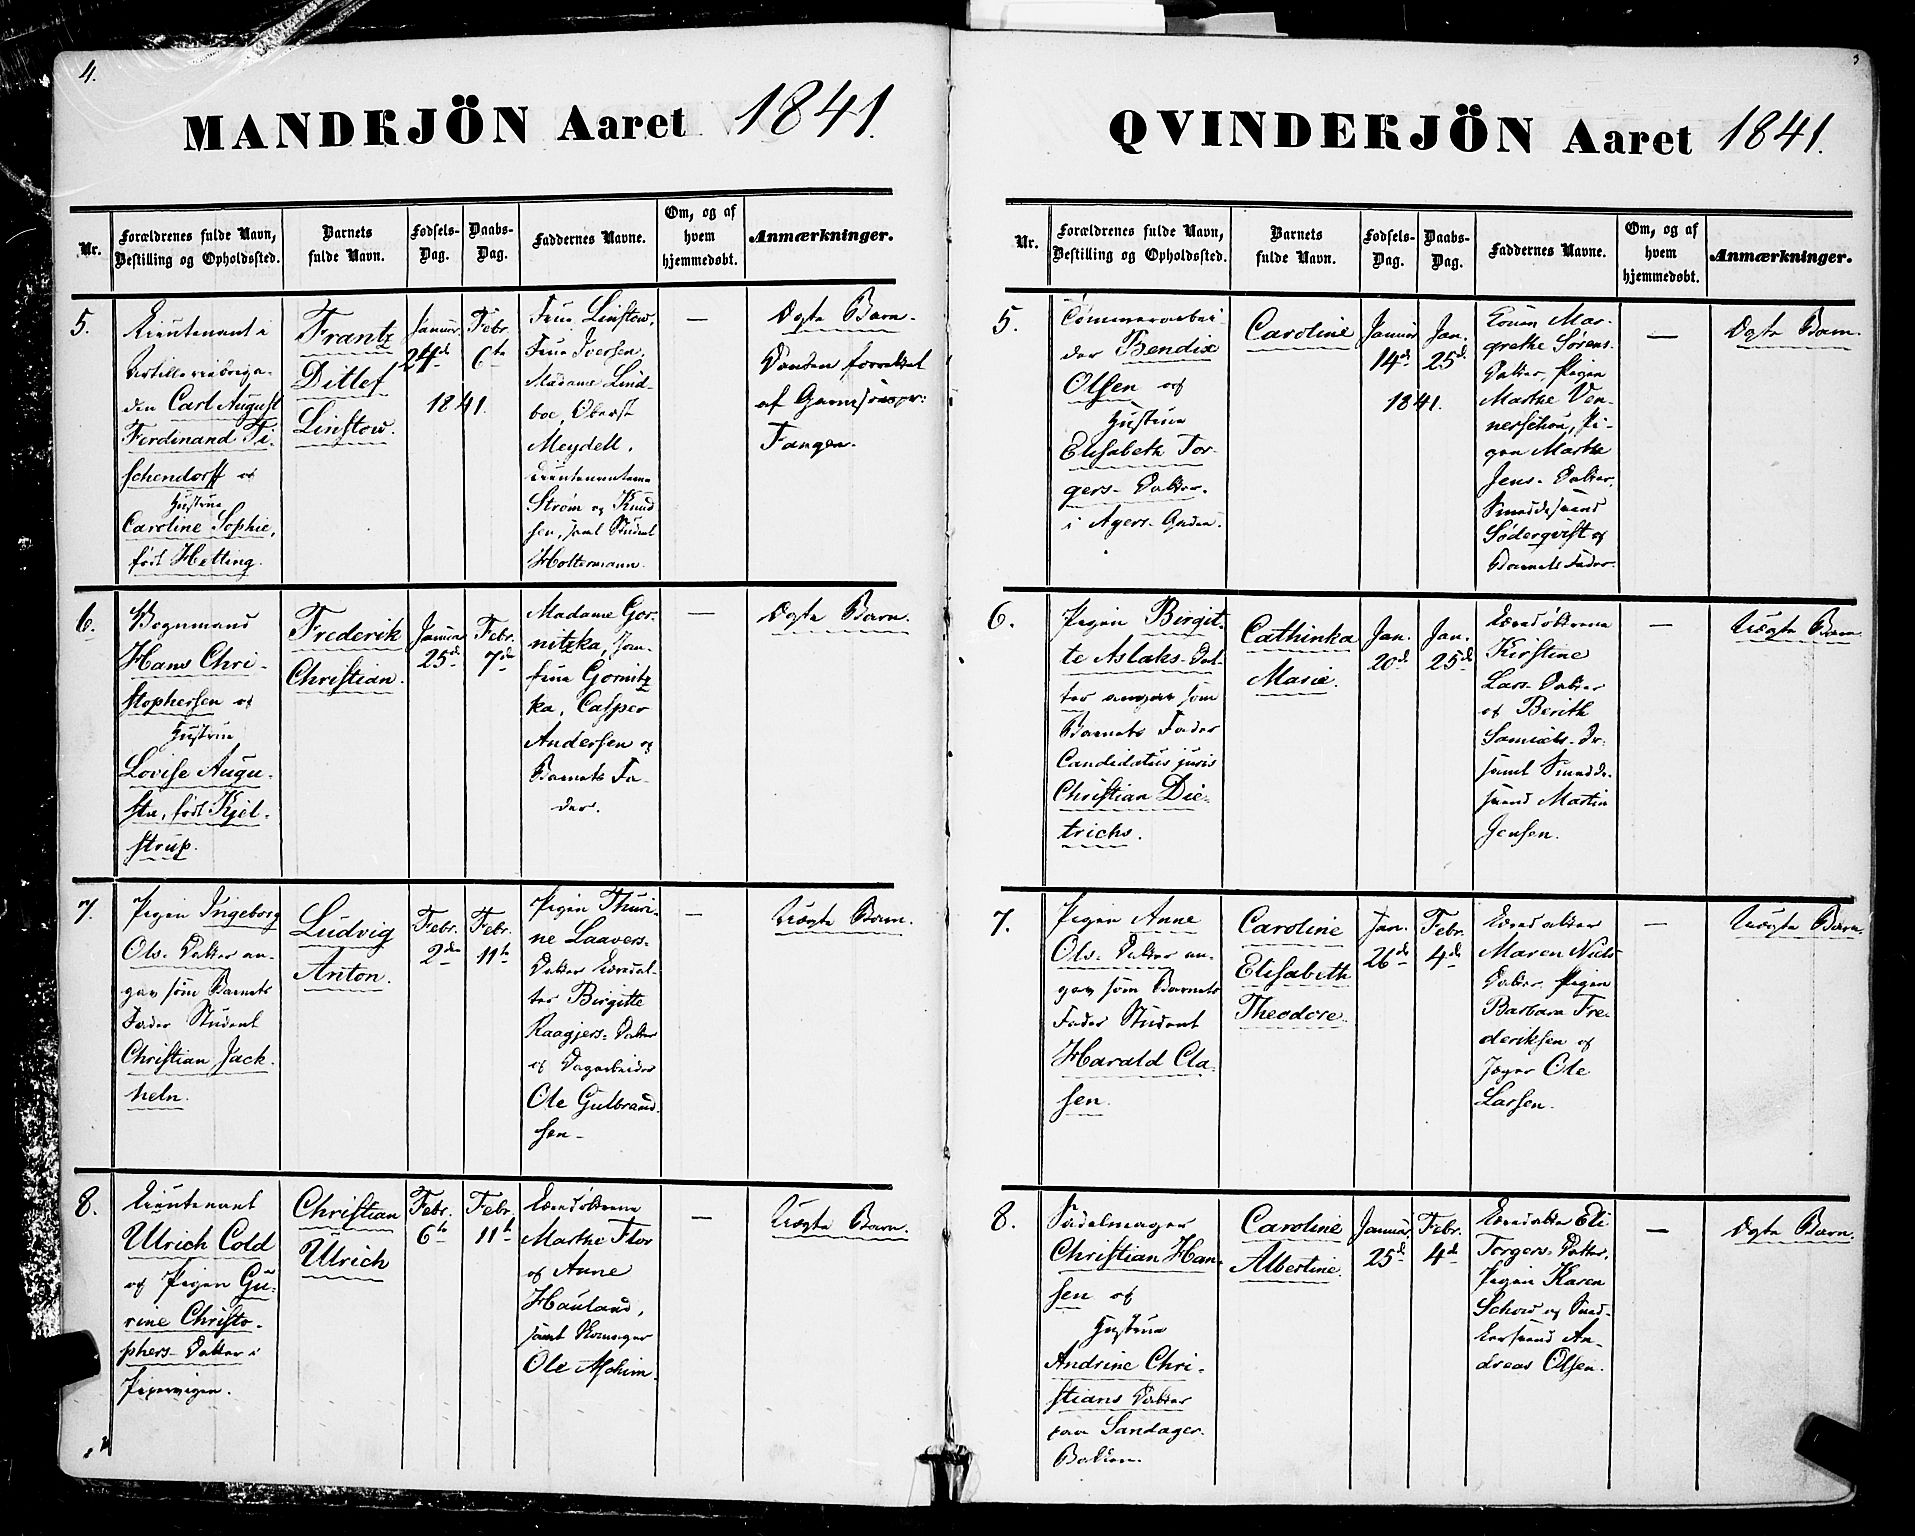 4.
MANDKJÖN Aaret 1841.
Nr.
Forældrenes fulde Navn,
Bestilling og Opholdssted.
Barnets
fulde Navn.
Fødsels-
Dag.
Daabs-
Dag.
Faddernes Navne.
Om, og af
hvem
hjemmedøbt.
Anmærkninger.
5.
Lieutenant i
Artilleribriga-
den Carl August
Ferdinand Ti-
schendorff og
Hustrue
Caroline Sophie,
født Hetting.
Frantz
Ditlef
Linstow.
Januar
24de
Febr.
6te
1841.
Frue Linstow,
Frue Iversen,
Madame Lind-
boe, Oberst
Meydell,
Lieutenanterne
Strøm og Knud
sen, samt Student
Holtermann.
—
Ægte Barn.
Daaben forrettet
af Garnisonspr:
Fangen.
6.
Vognmand
Hans Chri-
stophersen og
Hustrue
Lovise Augu-
sta, født Kjel-
strup.
Frederik
Christian.
Januar
25de
Febr.
7de
Madame Gor-
nitzka, Jom-
frue Gornitz
ka, Casper
Andersen og
Barnets Fa-
der.
—
Ægte Barn.
7.
Pigen Ingeborg
Ols-Datter an-
gav som Barnets
Fader Student
Christian Jack-
heln.
Ludvig
Anton.
Febr.
2de
Febr.
11te
Pigen Thuri-
ne Laavers-
Datter
Birgitte
Raagjers-Datter
og Dagarbeider
Ole Gulbrand-
sen-
—
Uægte Barn.
8.
Lieutenant
Ulrich Cold
og Pigen Gu-
rine Christo-
phers-Datter i
Pipervigen.
Christian
Ulrich
Febr.
6te
Febr.
11te
Marthe Flor
og Anne
Hauland,
samt Skomager
Ole
—
Uægte Barn.
QVINDEKJÖN Aaret 1841.
Nr.
Forældrenes fulde Navn,
Bestilling og Opholdssted.
Barnets
fulde Navn.
Fødsels-
Dag.
Daabs-
Dag.
Faddernes Navne.
Om, og af
hvem
hjemmedøbt.
Anmærkninger.
5.
Tømmerarbei-
der Bendix
Olsen og
Hustrue
Elisabeth Tor-
gers-Datter.
i Agers-Gaden.
Caroline
Januar
14de
Jan.
25de
1841.
Konen Mar-
grethe Sørens-
Datter, Pigen
Marthe Ven-
nerschou, Pi-
gen Marthe
Jens-Datter,
Smeddesvend
Söderqvist og
Barnets Fader.
—
Ægte Barn.
6.
Pigen Birgit-
te Aslaks-Dat-
ter angav som
Barnets Fader
Candidatus juris
Christian Die-
trichs.
Cathinka
Marie.
Jan.
20de
Jan.
25de
Kirstine
Lars-Datter
og Berith
samt Smedde-
svend Martin
Jensen.
—
Uægte Barn.
7.
Pigen Anne
Ols-Datter an-
gav som Barnets
Fader Student
Harald Cla-
sen.
Caroline
Elisabeth
Theodore.
Jan.
26de
Febr.
4de
Maren Niels
Datter, Pigen
Barbara Fre-
deriksen og
Jæger Ole
Larsen.
—
Uægte Barn.
8.
Sadelmager
Christian Han-
sen og
Hustrue
Andrine Chri-
stians Datter
paa Sandager-
Bakken.
Caroline
Albertine.
Januar
25de
Febr.
4de
Eli
Torgers-Datter,
Pigen Karen
Schow og Sned-
kersvend An-
dreas Olsen.
—
Ægte Barn.